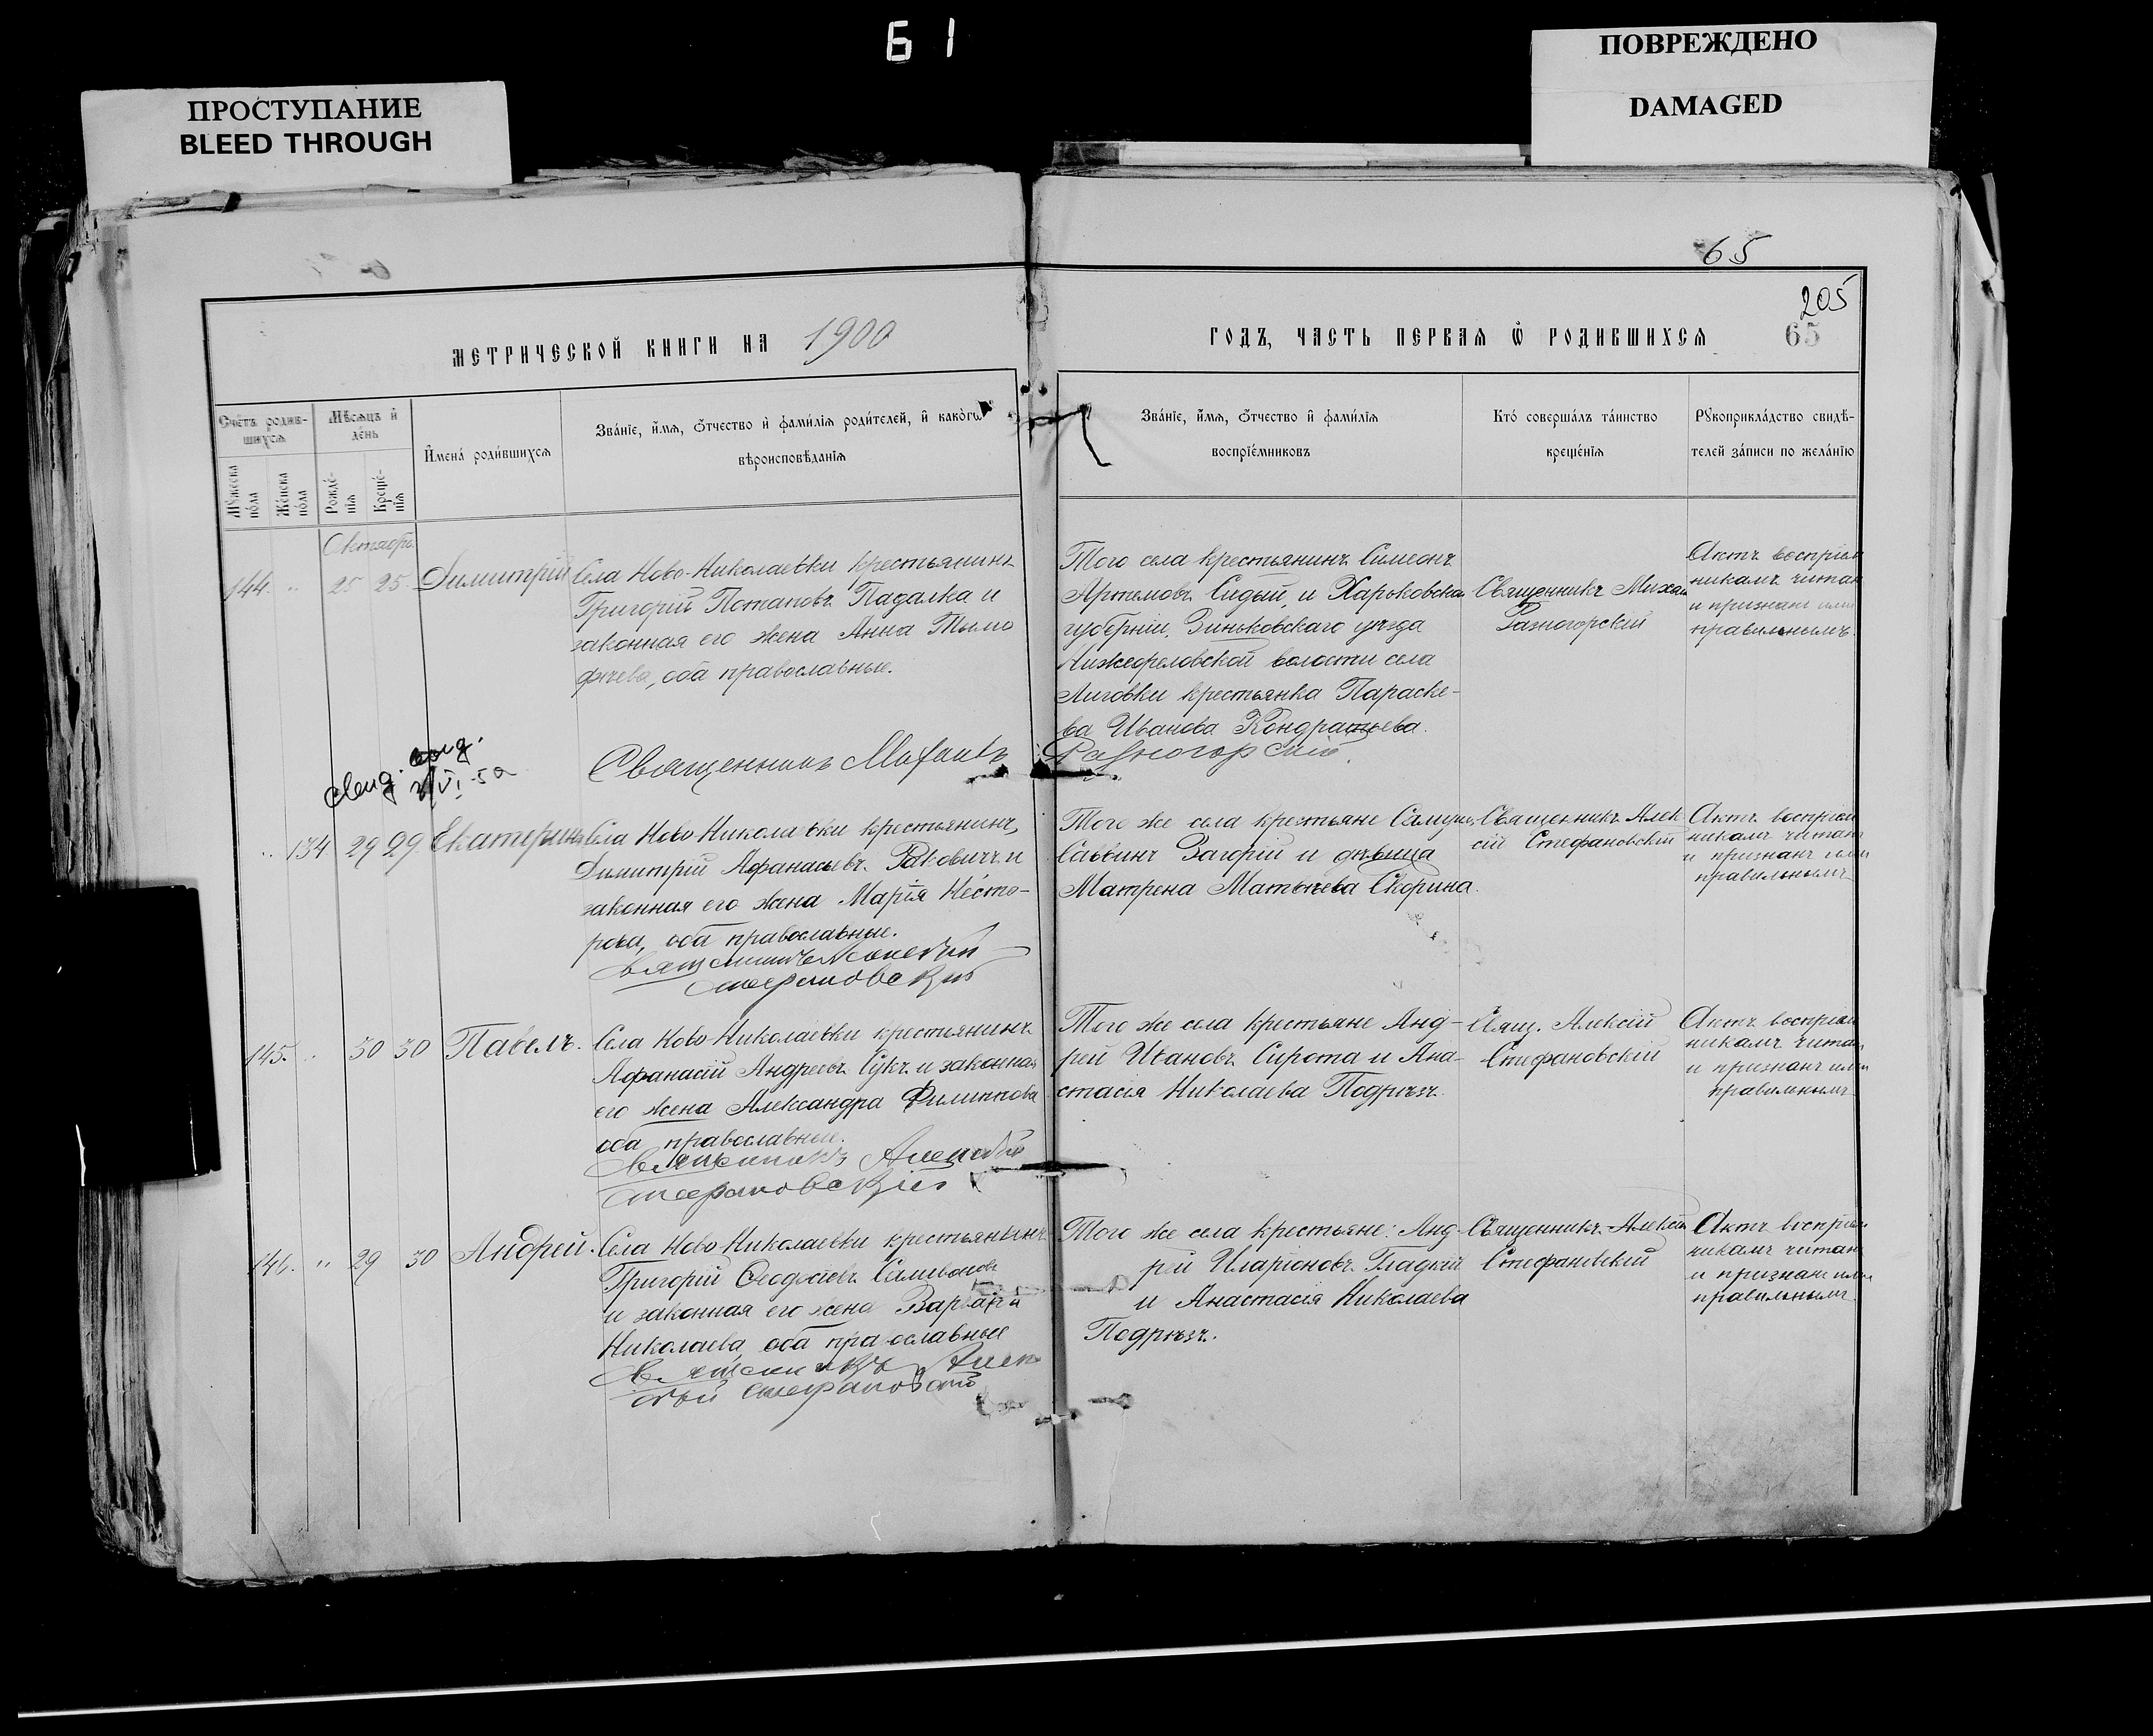 Б 1
ПРОСТУПАНИЕ
BLEED THROUGH
ПОВРЕЖДЕНО
DAMAGED
65
205
65
МЕТРИЧЕСКОЙ КНИГИ НА 1900
ГОДЪ, ЧАСТЬ ПЕРВАЯ Ѡ РОДИВШИХСЯ
Счётъ родив-
шихся
Мѣсяцъ и
день
Мужеска
пола
Женска
пола
Рожде-
нія
Креще-
нія
Имена родившихся
Званіе, имя, отчество и фамилія родителей, и какогѡ
вѣроисповѣданія
Званіе, имя, отчество и фамилія
воспріемниковъ
Кто совершалъ таинство
крещенія
Рукоприкладство свидѣ-
телей записи по желанію
Октябрь
144. " 25 25 Димитрій
Села Ново-Николаевки крестьянинъ
Григорій Потаповъ Падалка и
законная его жена Анна
оба православные.
Того села крестьянинъ Симеонъ
Артемовъ Сидый, и Харьковской
губерніи, Зиньковскаго уѣзда
волости села
Лиговки крестьянка Параске-
ва Иванова Кондратьева.
Священникъ Михаилъ
Разногорскій
Актъ воспріем
никамъ читан
и признанъ ими
правильнымъ.
Священникъ Михаилъ Разногорскій.
" 134 29 29 Екатерина
Села Ново-Николаевки крестьянинъ
Димитрій Афанасьевъ Раковичъ и
законная его жена Марія Несто-
рова, оба православные.
Священникъ Алексѣй
Стефановскій
Того же села крестьяне Самуилъ
Саввинъ Загорій и дѣвица
Матрена Матвѣева Скорина.
Священникъ Алек
сій Стефановскій
Актъ воспріем
никамъ читанъ
и признанъ ими
правильнымъ
145. " 30 30 Павелъ.
Села Ново-Николаевки крестьянинъ
Афанасій Андреевъ Сукъ и законная
его жена Александра Филиппова
оба православные.
Священникъ Алексѣй
Стефановскій
Того же села крестьяне Анд-
рей Ивановъ Сирота и Ана-
стасія Николаева Подрѣзъ.
Свящ. Алексій
Стефановскій
Актъ воспріем
никамъ читан
и признанъ ими
правильнымъ
146. " 29 30 Андрей.
Села Ново-Николаевки крестьянинъ
Григорій Селивановъ
и законная его жена Варвара
Николаева, оба православные
Священникъ Алек
сѣй Стефановскій
Того же села крестьяне: Анд-
рей Иларіоновъ Гладкій
и Анастасія Николаева
Подрѣзъ.
Священникъ Алексій
Стефановскій
Актъ воспріем
никамъ читан
и признанъ ими
правильнымъ.